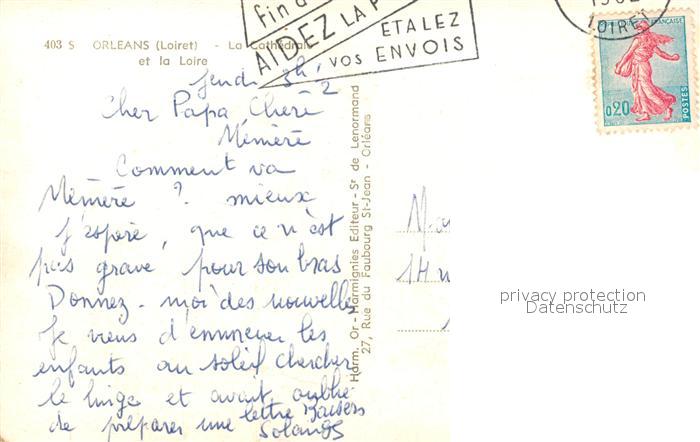 fin d
AIDEZ LA P
ETALEZ
VOS ENVOIS
LOIRET
FRANÇAISE
0,20
POSTES
403 S ORLEANS (Loiret) - La Cathédrale
et la Loire
Jeudi 3h 1/2
Cher Papa, Chère
Mémère
Comment va
Mémère ? mieux
j'espère, que ce n'est
pas grave pour son bras
Donnez-moi des nouvelles
Je viens d'emmener les
enfants au soleil chercher
le linge et avait oublié
de préparer une lettre Baisers
Solange
Harm. Or - Harmignies Editeur - Sr de Lenormand
27, Rue du Faubourg St-Jean - Orléans
privacy protection
Datenschutz